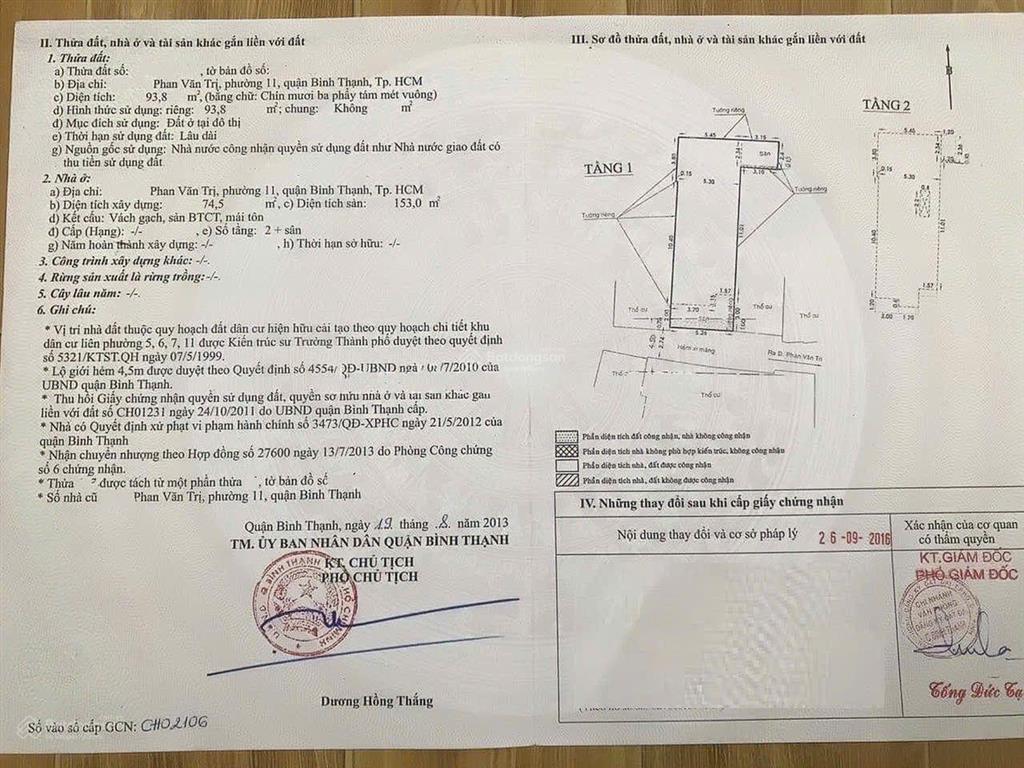 II. Thửa đất, nhà ở và tài sản khác gắn liền với đất
1. Thửa đất:
a) Thửa đất số: , tờ bản đồ số:
b) Địa chỉ: Phan Văn Trị, phường 11, quận Bình Thạnh, Tp. HCM
c) Diện tích: 93,8 m², (bằng chữ: Chín mươi ba phẩy tám mét vuông)
d) Hình thức sử dụng: riêng: 93,8 m²; chung: Không m²
đ) Mục đích sử dụng: Đất ở tại đô thị
e) Thời hạn sử dụng đất: Lâu dài
g) Nguồn gốc sử dụng: Nhà nước công nhận quyền sử dụng đất như Nhà nước giao đất có
thu tiền sử dụng đất
2. Nhà ở:
a) Địa chỉ: Phan Văn Trị, phường 11, quận Bình Thạnh, Tp. HCM
b) Diện tích xây dựng: 74,5 m², c) Diện tích sàn: 153,0 m²
d) Kết cấu: Vách gạch, sàn BTCT, mái tôn
đ) Cấp (Hạng): -/- , e) Số tầng: 2 + sân
g) Năm hoàn thành xây dựng: -/- , h) Thời hạn sở hữu: -/-
3. Công trình xây dựng khác: -/-.
4. Rừng sản xuất là rừng trồng:-/-.
5. Cây lâu năm: -/-.
6. Ghi chú:
* Vị trí nhà đất thuộc quy hoạch đất dân cư hiện hữu cải tạo theo quy hoạch chi tiết khu
dân cư liên phường 5, 6, 7, 11 được Kiến trúc sư Trưởng Thành phố duyệt theo quyết định
số 5321/KTST.QH ngày 07/5/1999.
* Lộ giới hẻm 4,5m được duyệt theo Quyết định số 4554/ QĐ-UBND ngà /7/2010 của
UBND quận Bình Thạnh.
* Thu hồi Giấy chứng nhận quyền sử dụng đất, quyền sở hữu nhà ở và tài sản khác gắn
liền với đất số CH01231 ngày 24/10/2011 do UBND quận Bình Thạnh cấp.
* Nhà có Quyết định xử phạt vi phạm hành chính số 3473/QĐ-XPHC ngày 21/5/2012 của
quận Bình Thạnh
* Nhận chuyển nhượng theo Hợp đồng số 27600 ngày 13/7/2013 do Phòng Công chứng
số 6 chứng nhận.
* Thửa được tách từ một phần thửa , tờ bản đồ số
* Số nhà cũ Phan Văn Trị, phường 11, quận Bình Thạnh
Quận Bình Thạnh, ngày 19 tháng 8 năm 2013
TM. ỦY BAN NHÂN DÂN QUẬN BÌNH THẠNH
KT. CHỦ TỊCH
PHÓ CHỦ TỊCH
Dương Hồng Thắng
Số vào sổ cấp GCN: CH02106
III. Sơ đồ thửa đất, nhà ở và tài sản khác gắn liền với đất
B
TẦNG 2
TẦNG 1
Tường riêng
5.45
3.15
Sân
3.10
5.30
0.15
Tường riêng
Tường riêng
10.40
11.01
1.57
3.70
3.00
5.24
Thổ cư
Thổ cư
Thổ cư
Hẻm xi măng
Ra Đ. Phan Văn Trị
Thổ cư
5.45
1.20
5.30
0.15
10.40
11.01
1.57
3.00
1.70
Batdongsan
Phần diện tích đất công nhận, nhà không công nhận
Phần diện tích nhà không phù hợp kiến trúc, không công nhận
Phần diện tích nhà, đất được công nhận
Phần diện tích nhà, đất không được công nhận
IV. Những thay đổi sau khi cấp giấy chứng nhận
Nội dung thay đổi và cơ sở pháp lý
26-09-2016
Xác nhận của cơ quan
có thẩm quyền
KT.GIÁM ĐỐC
PHÓ GIÁM ĐỐC
CHI NHÁNH
VĂN PHÒNG
ĐĂNG KÝ ĐẤT ĐAI
Q.BÌNH THẠNH
Tống Đức Tạ